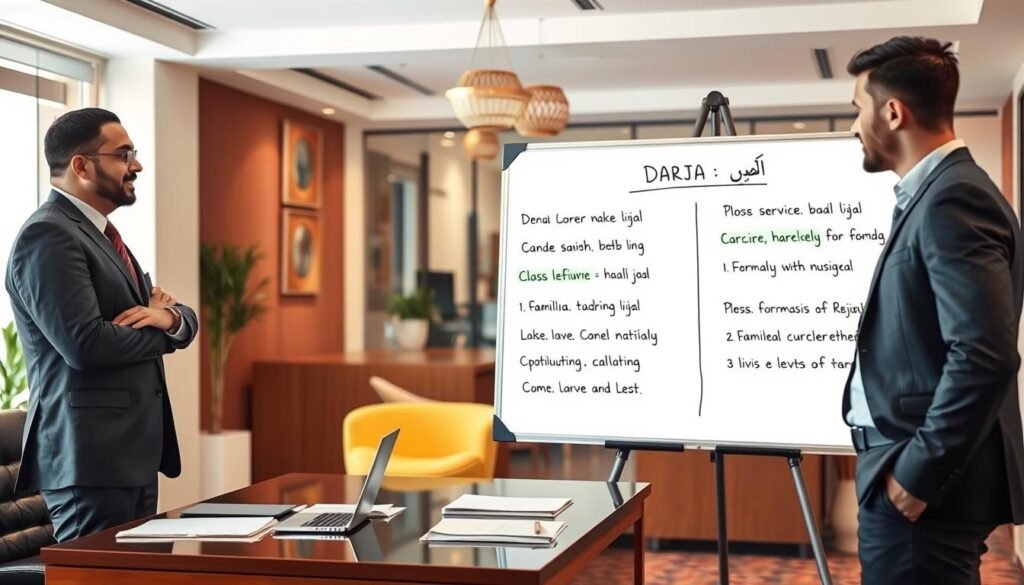 DARJA :
Denal Lorer nake lijal
Cande saish, betb ling
Class lefiurre = haall joal
1. Famillia. tadring lijal
Lake. lave. Conel natilaly
Cpotiluuting, callating
Come, larve and Lest.
Ploss service. badl ligal
Carcire, harelcely for fomdg
1. Formaly with nusigcal
Pless. formasis of
2. Famileal curcler
3 livis e levts of